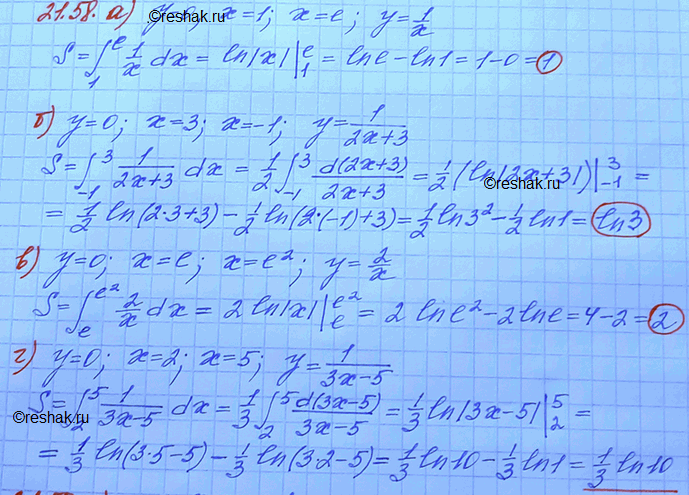 ©reshak.ru
21.58. а) y=0; x=1; x=e; y=1/x
S=∫₁ᵉ 1/x dx = ln|x| |₁ᵉ = ln e - ln1 = 1-0 = 1
б) y=0; x=3; x=-1; y=1/(2x+3)
S=∫₋₁³ 1/(2x+3) dx = 1/2 ∫₋₁³ d(2x+3)/(2x+3) = 1/2 (ln|2x+3|)|₋₁³ =
©reshak.ru
= 1/2 ln(2·3+3) - 1/2 ln(2·(-1)+3) = 1/2 ln3² - 1/2 ln1 = ln3
в) y=0; x=e; x=e²; y=2/x
S=∫ₑ^(e²) 2/x dx = 2 ln|x| |ₑ^(e²) = 2 ln e² - 2 ln e = 4-2 = 2
г) y=0; x=2; x=5; y=1/(3x-5)
S=∫₂⁵ 1/(3x-5) dx = 1/3 ∫₂⁵ d(3x-5)/(3x-5) = 1/3 ln|3x-5| |₂⁵ =
©reshak.ru
= 1/3 ln(3·5-5) - 1/3 ln(3·2-5) = 1/3 ln10 - 1/3 ln1 = 1/3 ln10